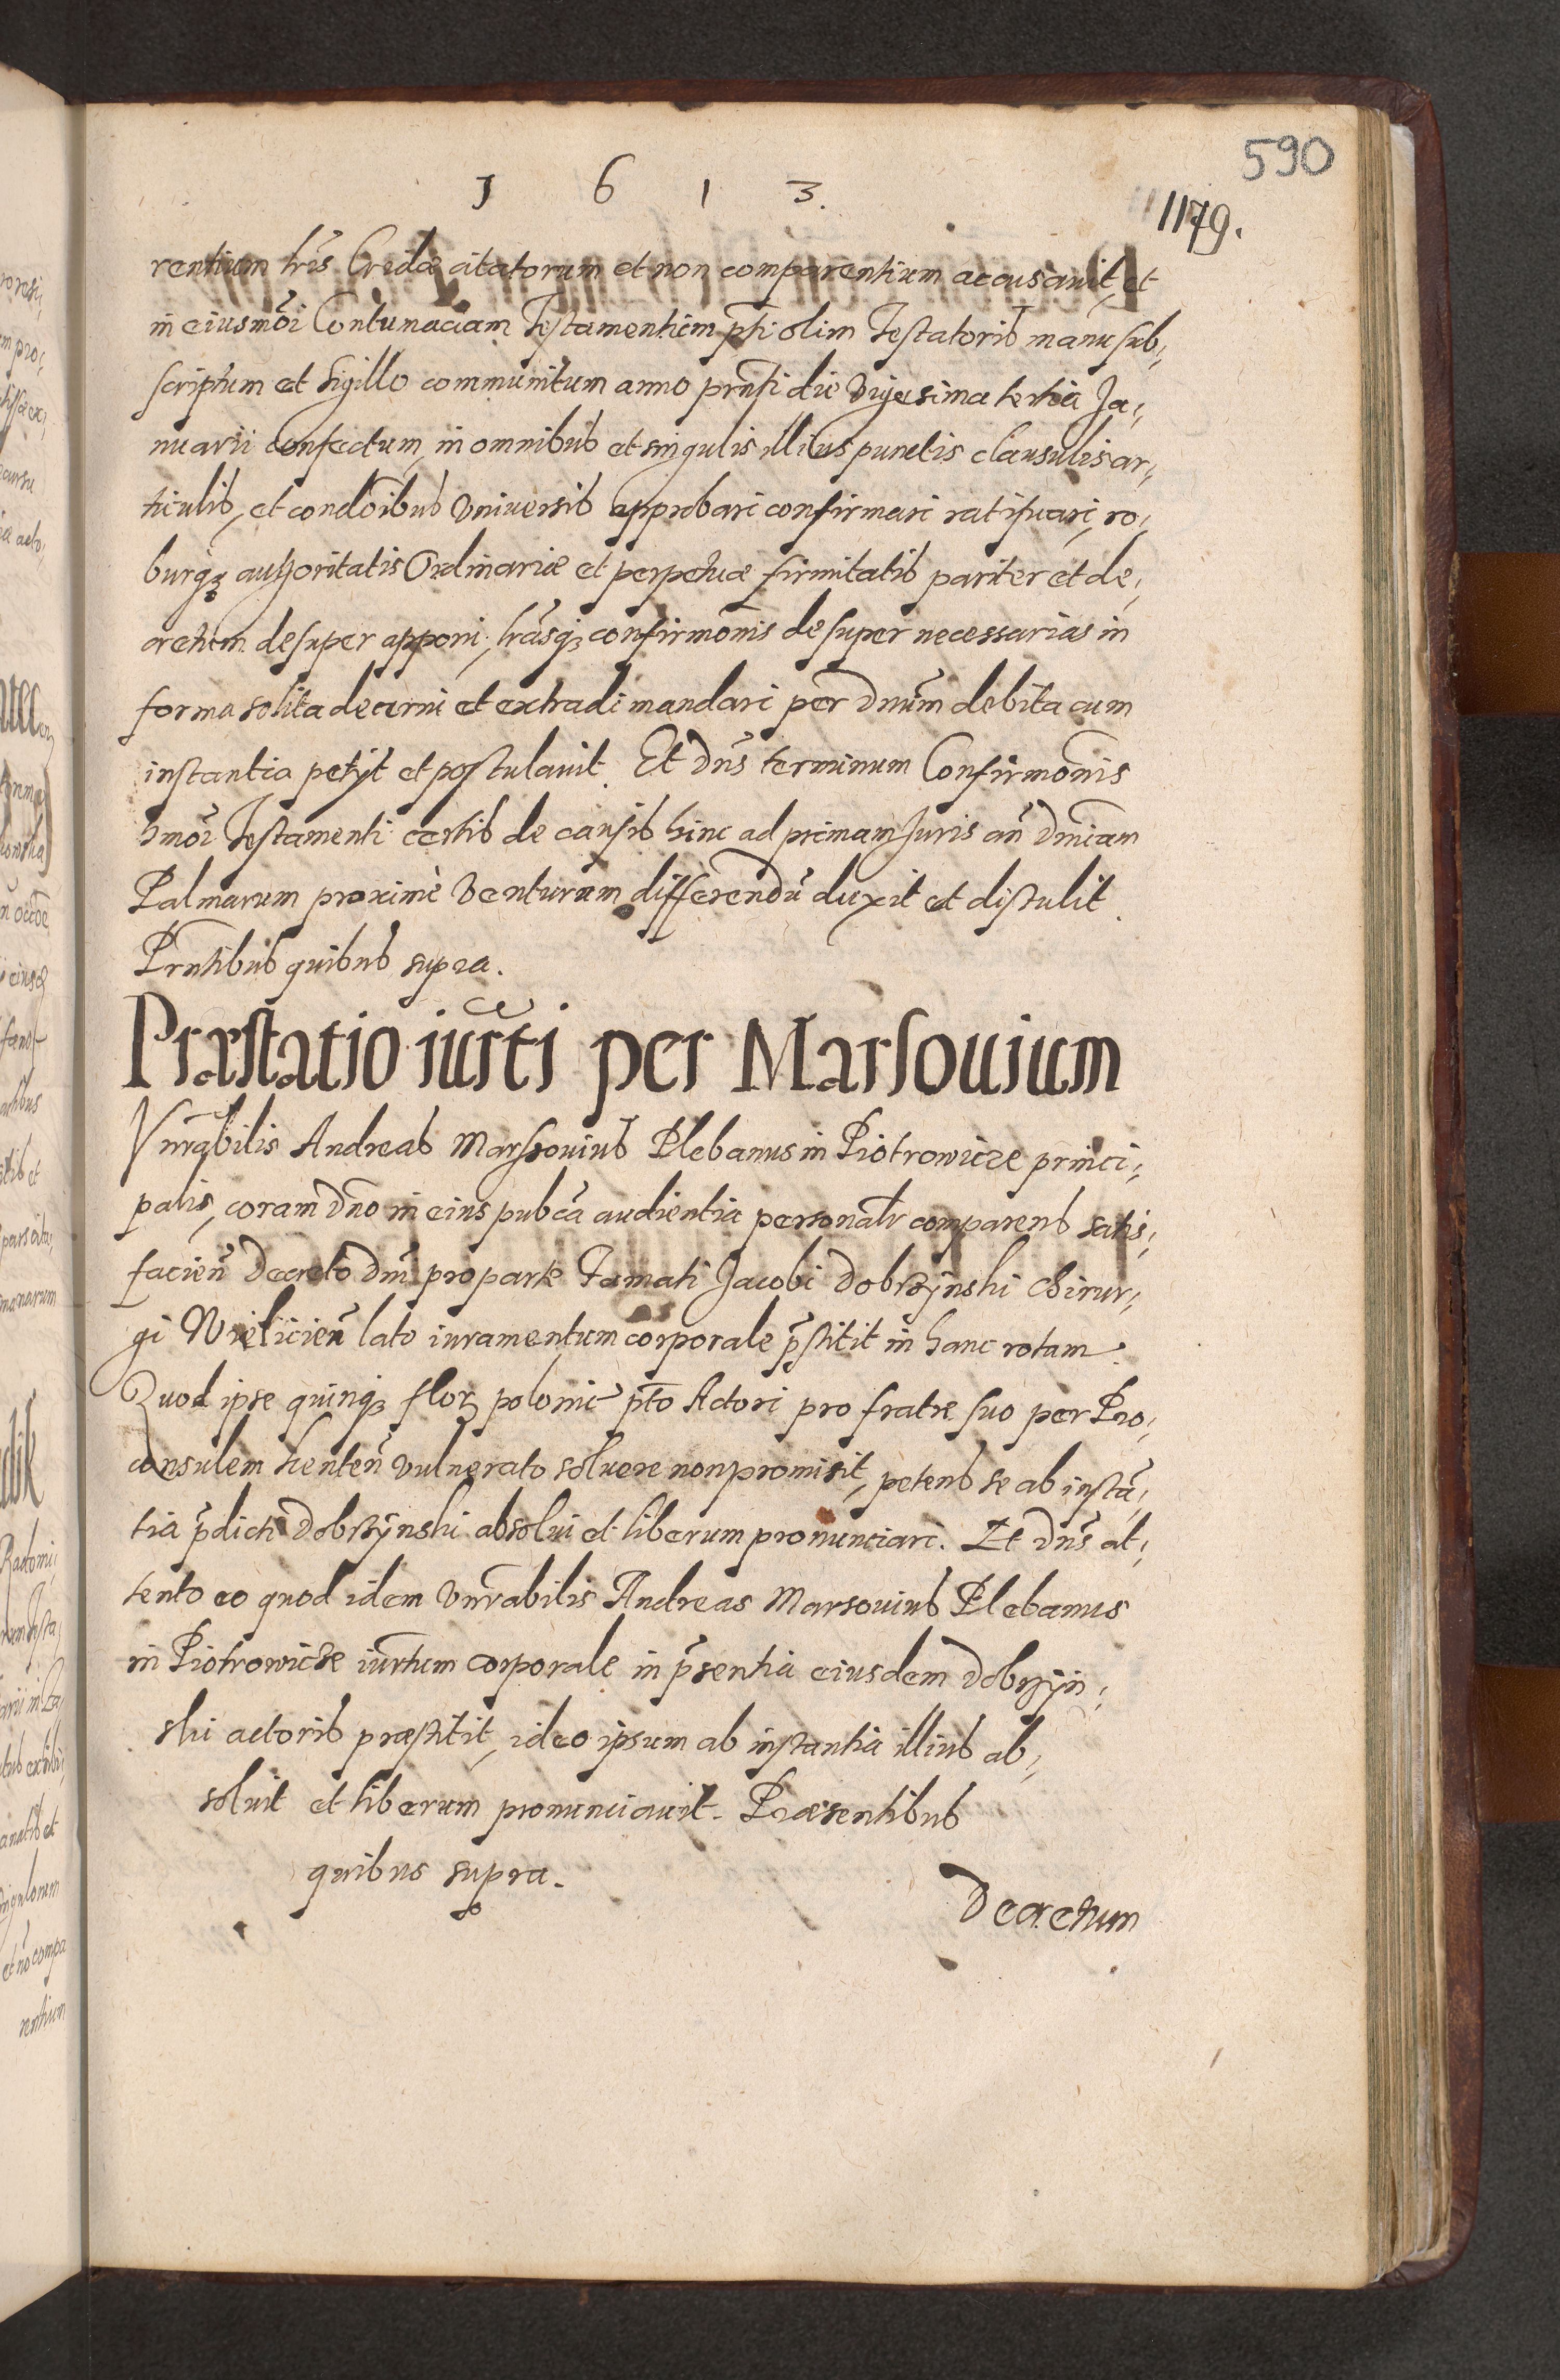 590
1613.
1179.
rentium lr̃is Cridæ citatorum et non comparentium accusavit, et
in eiusmõi Contumaciam Testamentum pñti olim Testatoris manu sub,
scriptum et sigillo communitum anno prñti die Vigesima tertia Ja,
nuarii confectum, in omnibus et singulis illius punctis clausulis ar,
ticulis, et condõibus Universis approbari confirmari ratificari, ro,
burq3 authoritatis Ordinariæ et perpetuæ firmitatis pariter et de,
cretum desuper apponi, lrãsq3 confirmõnis desuper necessarias in
forma solita decerni et extradi mandari per Dnũm debita cum
instantia petÿt et postulavit. Et Dñs terminum Confirmõnis
hmõi Testamenti certis de causis hinc ad primam Juris añ Dnicam
Palmarum proximè Venturam differendũ duxit et distulit.
Prñtibus quibus supra.
Præstatio iurñti per Marsouium
Vnr̃abilis Andreas Marssouius Plebanus in Piotrowicze princi,
palis, coram Dño in eius pubcã audientia personalr comparens satis,
facieñ Decreto Dñi pro parte Famati Jacobi Dobrzÿnski Chirur,
gi Wielicieñ lato iuramentum corporale p̃stitit in hanc rotam.
Quod ipse quinq3 flor3 polonic pto Actori pro fratre suo per Pro,
consulem henteñ vulnerato soluere non promisit, petens se ab instã,
tia p̃dicti Dobrzÿnski absolui et liberum pronunciari. Et Dñs at,
tento eo quod idem Vnr̃abilis Andreas Marsouius Plebanus
in Piotrowicze iurtum corporale in p̃sentia eiusdem Dobrzÿn,
ski actoris præstitit, ideo ipsum ab instantia illius ab,
soluit et liberum pronunciauit. Præsentibus
quibus supra.
Decretum